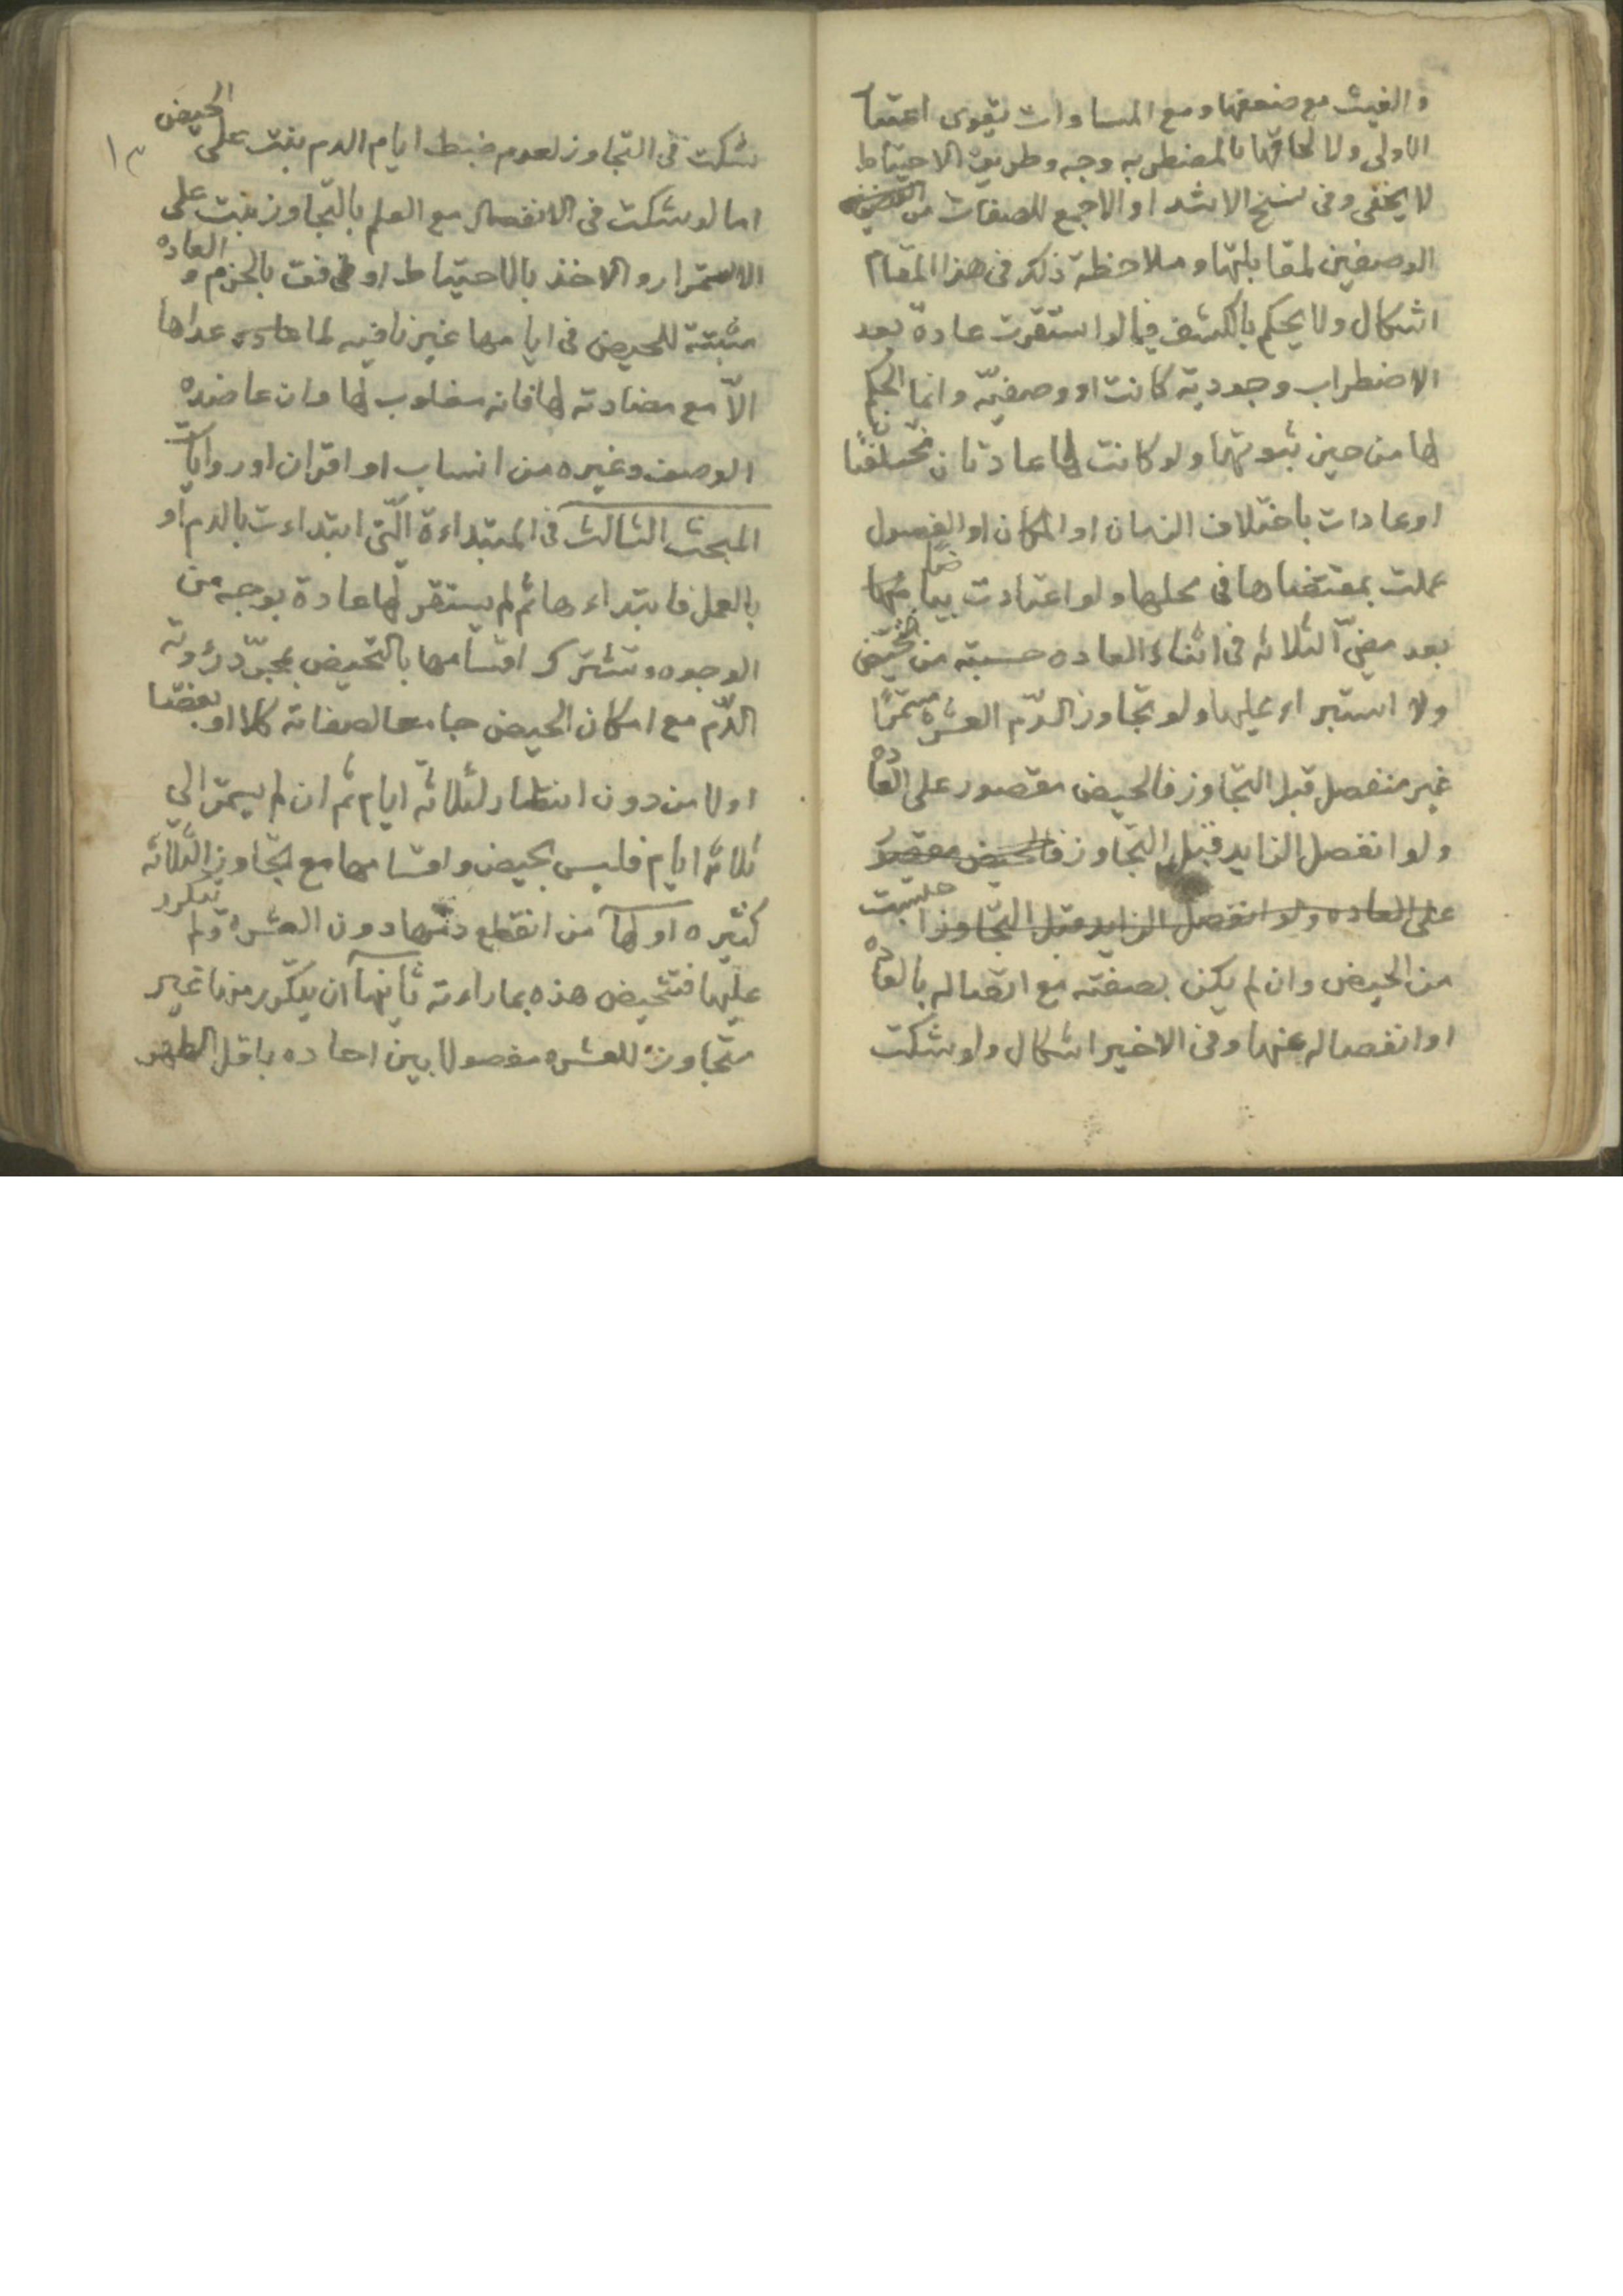 والغيث مع ضعفها ومع المساوات يقوى اعتبا
الاولى ولالحاقها بالمضطربه وجه وطريق الاحتياط
لا يخفى وفى نسخ الاشد او الاجمع للصفات من
الوصفين لمقابلتها وملاحظة ذلك فى هذا المقام
اشكال ولا يحكم بالكشف فيما لو استقرت عادة بعد
الاضطراب وجودية كانت او وصفيّه وانما الحكم
لها من حين ثبوتها ولو كانت لها عادتان مختلفتا
ن
او عادات باختلاف الزمان او المكان او الفصول
عملت بمقتضاها فى محلها ولو اعتادت بياضًا
بعد مضىّ الثلاثه فى اثناء العاده حسبته من تحيّض
ولا استبراء عليها ولو تجاوز الدّم العشره مستمرًا
غير منفصل قبل التجاوز فالحيض مقصور على العاده
ولو انفصل الزايد قبل التجاوز فالحيض مقصور
على العاده ولو انفصل الزايد قبل التجاوز
من الحيض وان لم يكن بصفته مع اتصاله بالعاده
او انفصاله عنها وفى الاخير اشكال ولو شكت
١٣
شكت فى التجاوز لعدم ضبط ايام الدم بنت على الحيض
اما لو شكت فى الانفصال مع العلم بالتجاوز بنت على
الاستمرار والاخذ بالاحتياط اوفق بالحزم والعاده
مثبتة للحيض فى ايامها غير نافيه لما عداها
الاّ مع مضادته لها فانه مغلوب لها وان عاضده
الوصف وغيره من انساب او اقران او روايات
المبحث الثالث فى المبتداءة الّتى ابتداءت بالدم او
بالعمل فابتداءها ثم لم يستقر لها عادة بوجه من
الوجوه وتشترك اقسامها بالتحيض بمجرّد رؤية
الدّم مع امكان الحيض جامعا لصفاته كلا او بعضا
اولا من دون انتظار لثلاثة ايام ثم ان لم يستمر الى
ثلاثة ايام فليس بحيض واقسامها مع التجاوز الثلاثه
كثيره اولها من انقطع دمها دون العشره ولم يتكرر
عليها فتتحيض هذه بما راءته ثانيها ان يتكرر مرنا غير
متجاوز للعشره مفصولا بين احاده باقل الطهر